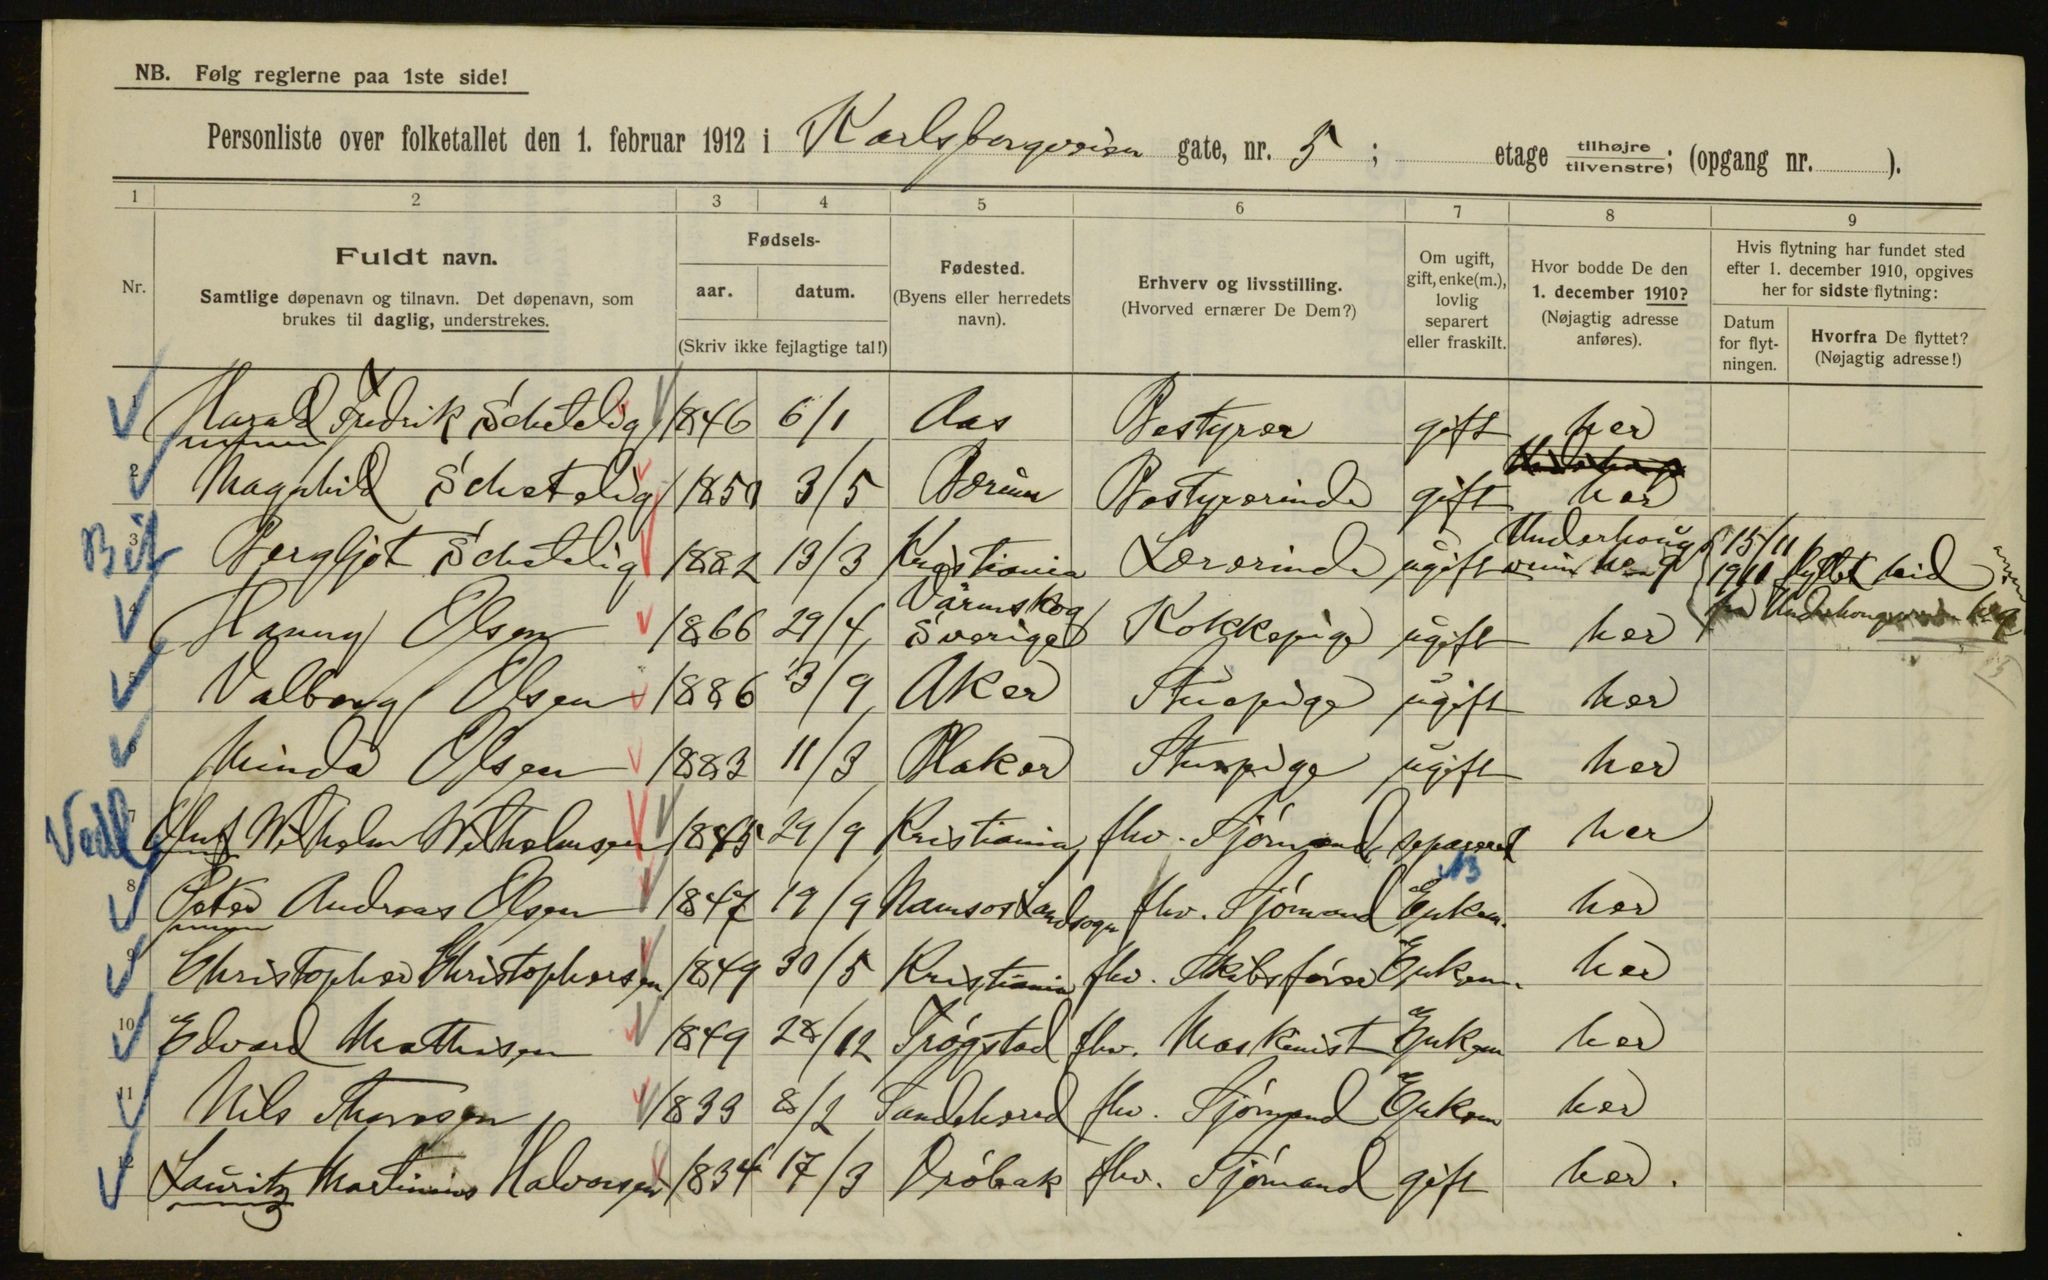 NB. Følg reglerne paa 1ste side!
Personliste over folketallet den 1. februar 1912 i Karlsborgveien gate, nr. 5 ; etage tilhøjre tilvenstre; (opgang nr. ).
1 2 3 4 5 6 7 8 9
Nr.
Fuldt navn.
Samtlige døpenavn og tilnavn. Det døpenavn, som
brukes til daglig, understrekes.
Fødsels-
aar. datum.
(Skriv ikke fejlagtige tal!)
Fødested.
(Byens eller herredets
navn).
Erhverv og livsstilling.
(Hvorved ernærer De Dem?)
Om ugift,
gift, enke(m.),
lovlig
separert
eller fraskilt.
Hvor bodde De den
1. december 1910?
(Nøjagtig adresse
anføres).
Hvis flytning har fundet sted
efter 1. december 1910, opgives
her for sidste flytning:
Datum
for flyt-
ningen.
Hvorfra De flyttet?
(Nøjagtig adresse!)
1 Harald Fredrik Schetelig 1846 6/1 Aas Bestyrer gift her
2 Magnhild Schetelig 1850 3/5 Bærum Bestyrerinde gift her
Bit 3 Bergljot Schetelig 1882 13/3 Kristiania Lærerinde ugift Underhoug 15/11 1911 flyttet hid
4 Hanny Olsen 1866 29/4 Värmskog Sverige Kokkepige ugift her
5 Valborg Olsen 1886 13/9 Aker Stuepige ugift her
6 Minda Olsen 1883 11/3 Blaker Stuepige ugift her
Vedl 7 Oluf Wilhelm Wilhelmsen 1845 29/9 Kristiania fhv. Sjømand separeret her
8 Peter Andreas Olsen 1847 19/9 Namsos Landsogn fhv. Sjømand Enkem. her
9 Christopher Christophersen 1849 30/5 Kristiania fhv. Skibsfører Enkem. her
10 Edvard Mathisen 1849 28/12 Trøgstad fhv. Maskinist Enkem her
11 Nils Thoresen 1833 8/2 Sandeherred fhv. Sjømand Enkem her
12 Lauritz Martinius Halvorsen 1834 17/3 Drøbak fhv. Sjømand gift her.